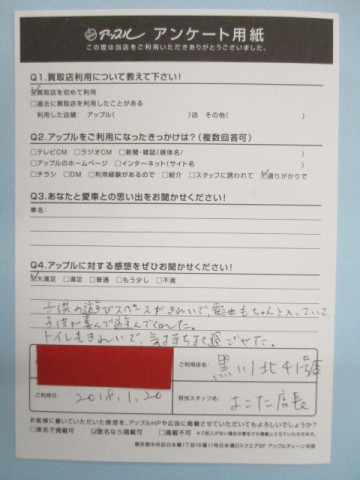 アップル アンケート用紙
この度は当店をご利用いただきありがとうございました。
Q1.買取店利用について教えて下さい!
☑買取店を初めて利用
□過去に買取店を利用したことがある
利用した店舗: アップル( )店 その他( )
Q2.アップルをご利用になったきっかけは?(複数回答可)
□テレビCM □ラジオCM □新聞・雑誌(媒体名/ )
□アップルのホームページ □インターネット(サイト名 )
□チラシ □DM □利用経験があるので □紹介 □スタッフに誘われて ☑通りがかりで
Q3.あなたと愛車との思い出をお聞かせください!
車名:
Q4.アップルに対する感想をぜひお聞かせください!
☑大満足 □満足 □普通 □もう少し □不満
子供の遊びスペースがきれいで、電池もちゃんと入っていて
子供が喜んで遊んでくれた。
トイレもきれいで、気持ちよく過ごせた。
ご利用店名: 黒川北4号店
ご利用日: 2018.1.20
担当スタッフ名: よこた店長
お客様に書いていただいた感想を、アップルHPや広告に掲載させていただいてもよろしいでしょうか?
□実名で掲載可 ☑匿名なら掲載可 □掲載不可
東京都中央区日本橋1丁目19番11号日本橋DスクエアBF アップルチェーン本部